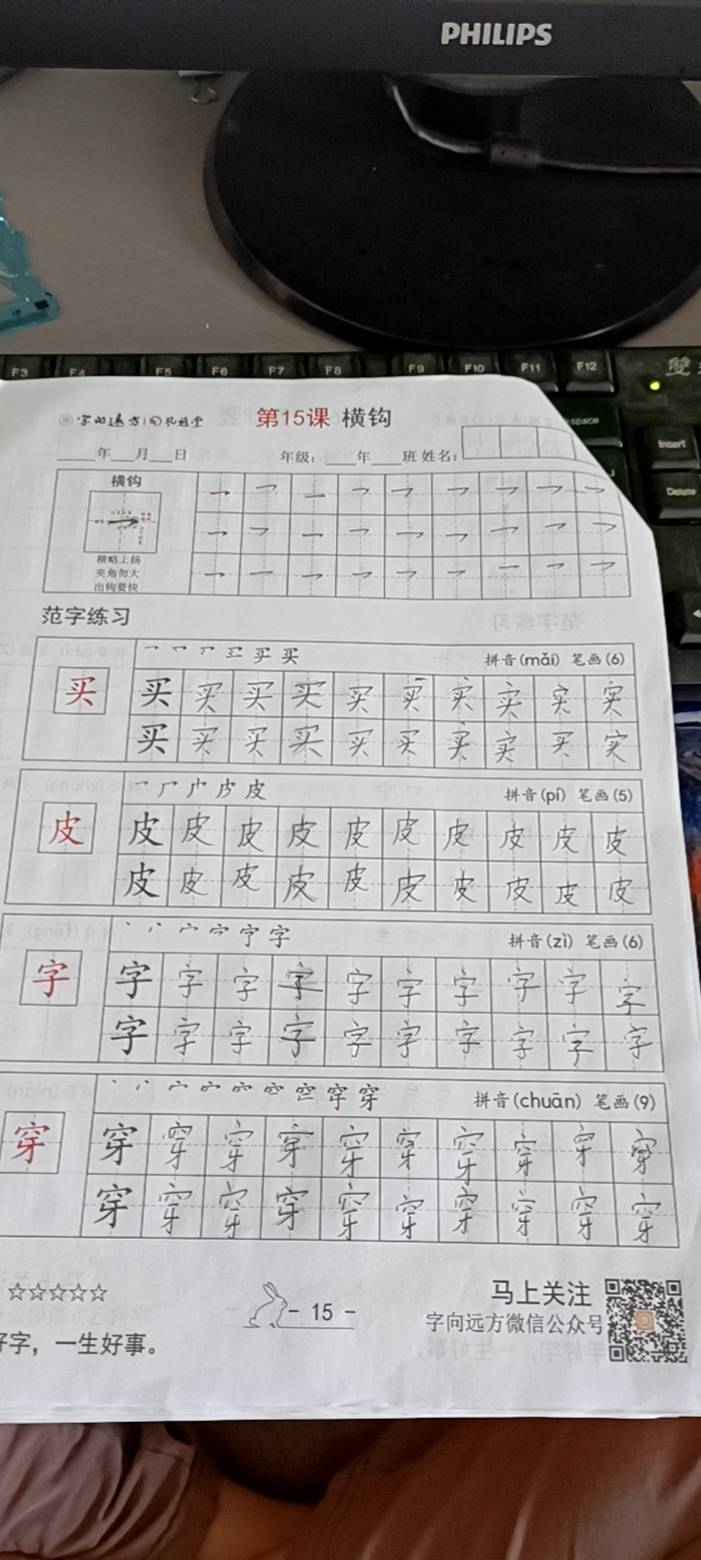 PHILIPS
F3 F4 F5 F6 F7 F8 F9 F10 F11 F12
Insert
Delete
字向远方
第15课 横钩
年 月 日 年级: 年 班 姓名:
横钩
横略上扬
夹角勿大
出钩要快
范字练习
买 拼音(mǎi) 笔画(6)
买 买 买 买 买 买 买 实 实 实 实
买 买 买 买 买 买 实 实 买 实
拼音(pí) 笔画(5)
皮 皮 皮 皮 皮 皮 皮 皮 皮 皮 皮
皮 皮 皮 皮 皮 皮 皮 皮 皮 皮
字 拼音(zì) 笔画(6)
字 字 字 字 字 字 字 字 字 字 字
字 字 字 字 字 字 字 字 字 字
穿 拼音(chuān) 笔画(9)
穿 穿 穿 穿 穿 穿 穿 穿 穿 穿 穿
穿 穿 穿 穿 穿 穿 穿 穿 穿 穿
☆☆☆☆☆
好字，一生好事。
- 15 -
马上关注
字向远方微信公众号